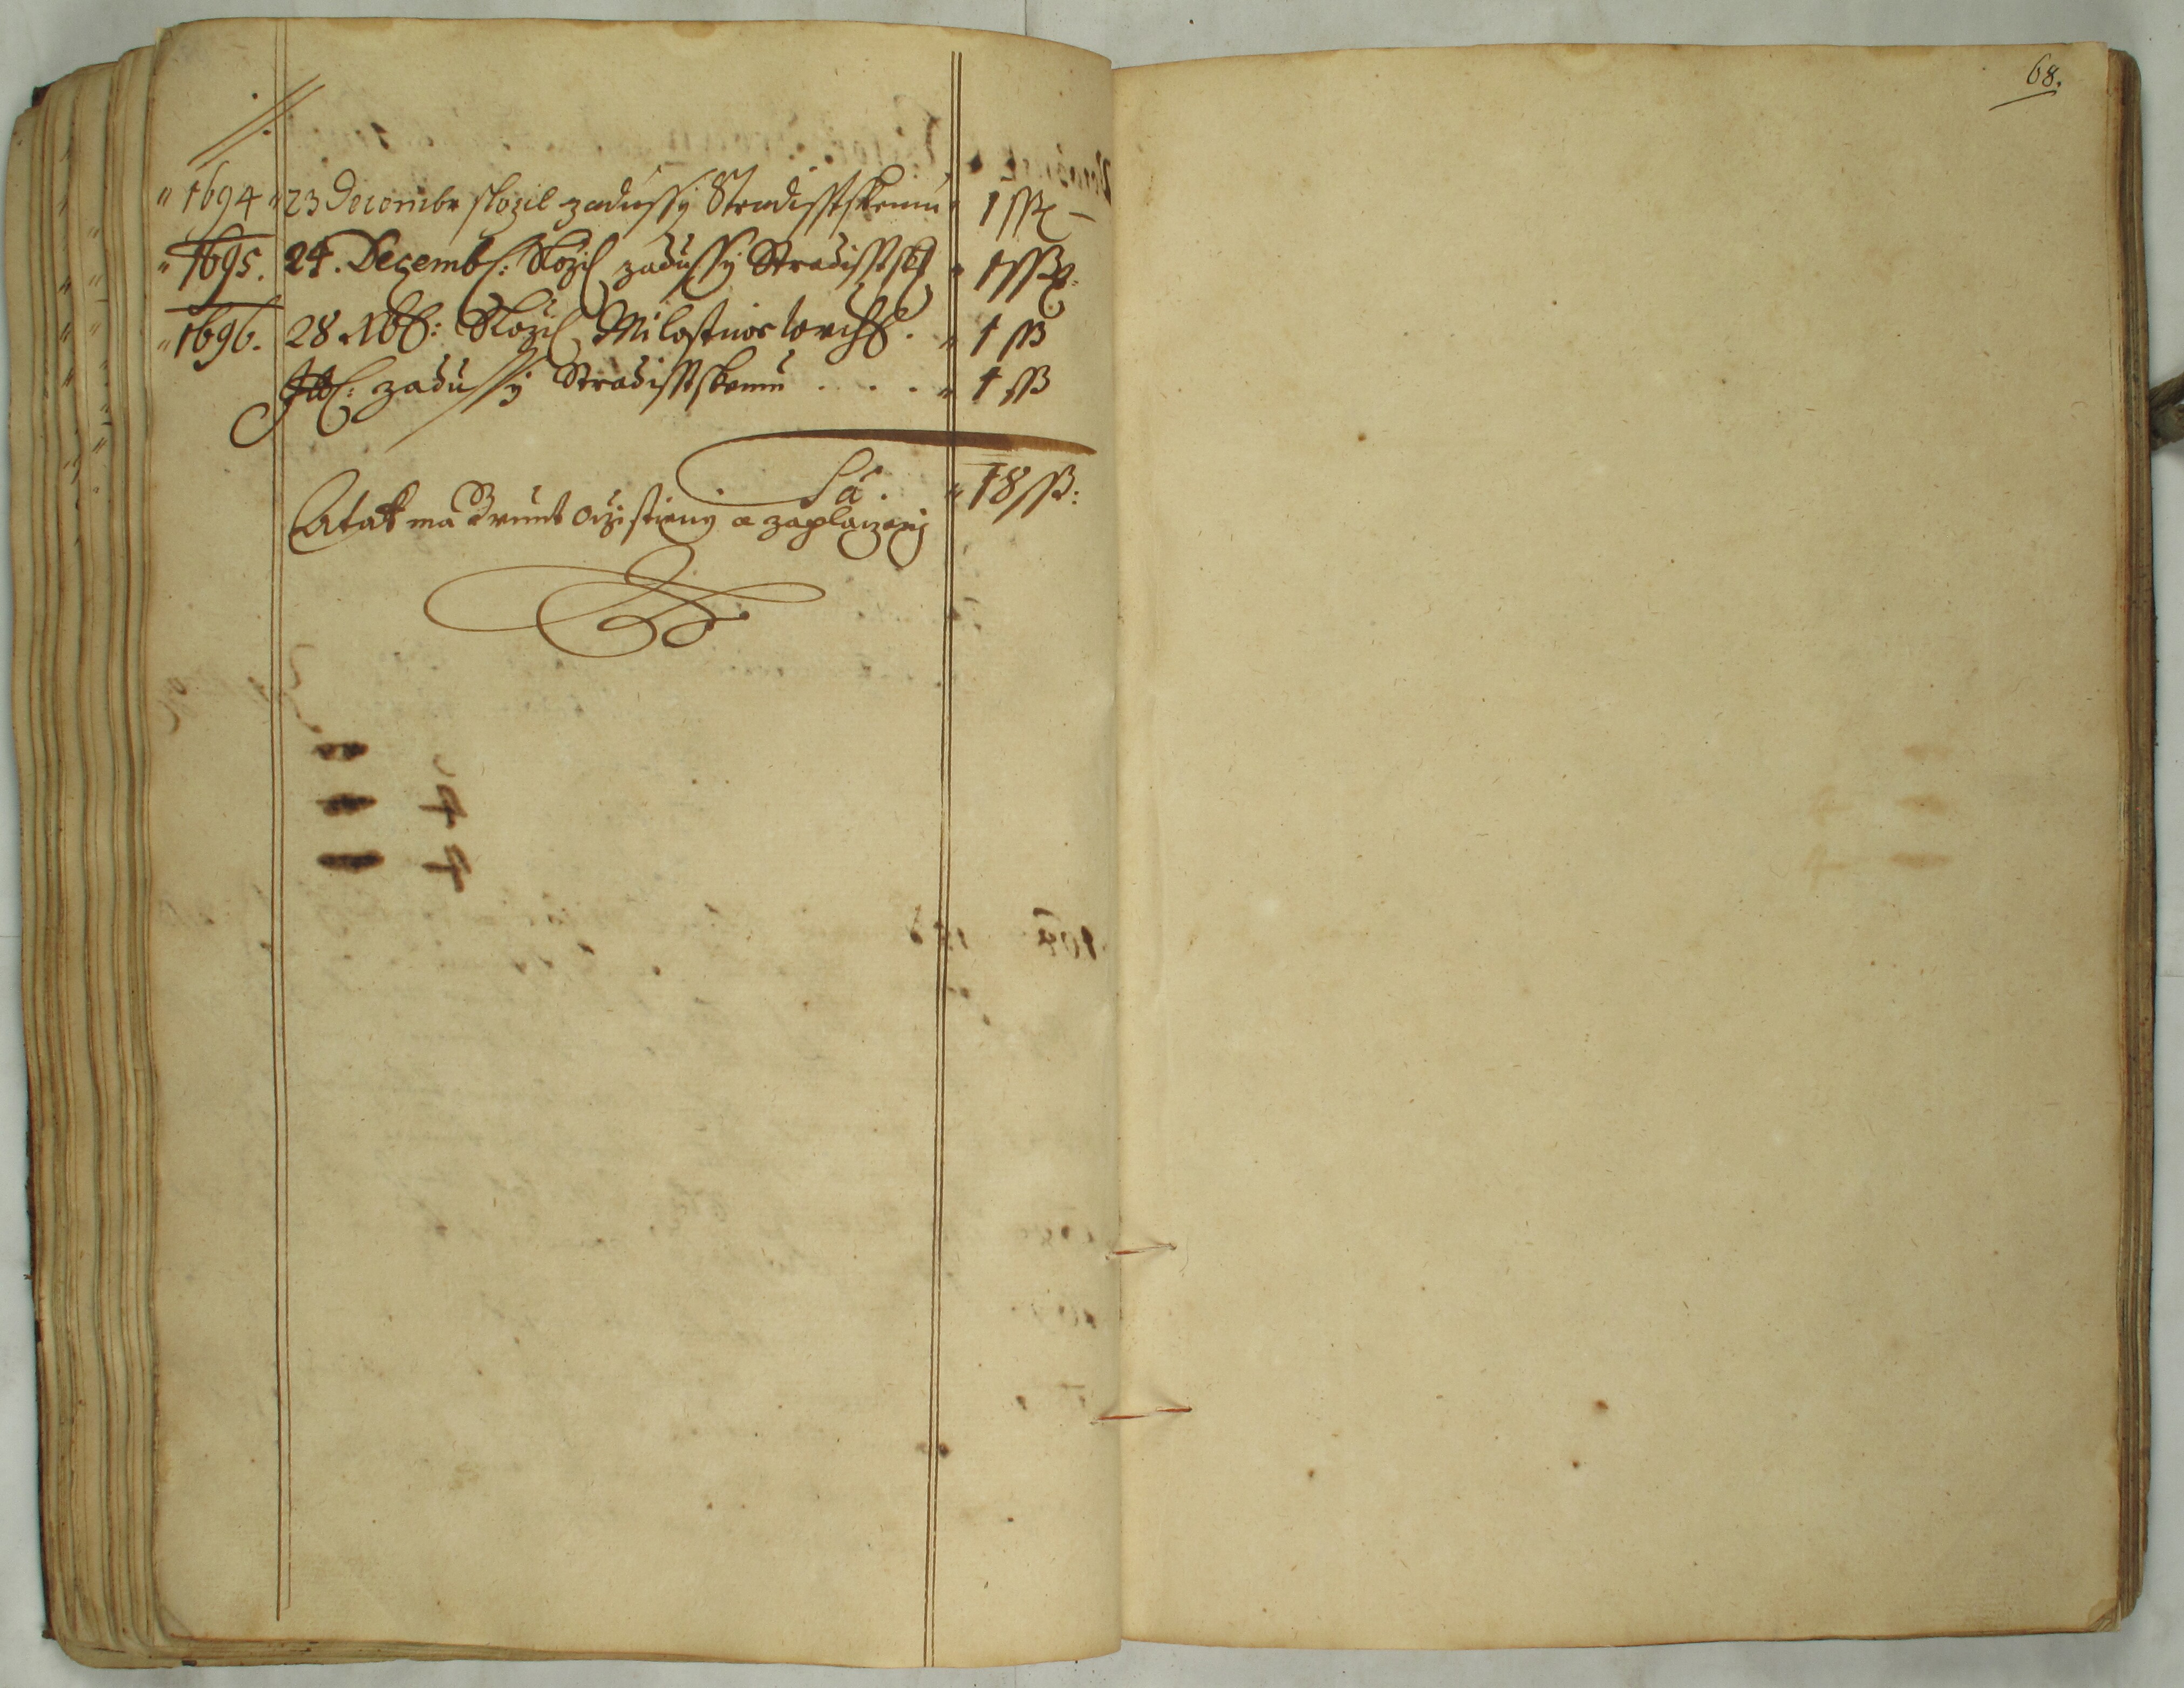 68.
1694 23 Decembr složil zadussy Stradisstskemu 1 ssk
1695. 24. Decemb: Složil zadussy Stradisstsk 1 ssk
1696. 28 Xb: Složil Milostive Vrchs. 1 ss
It: zadussy Stradisstskemu . . . . 1 ss
Sa. 18 ss:
A tak ma Grunt ocžistieny a zaplaczeny